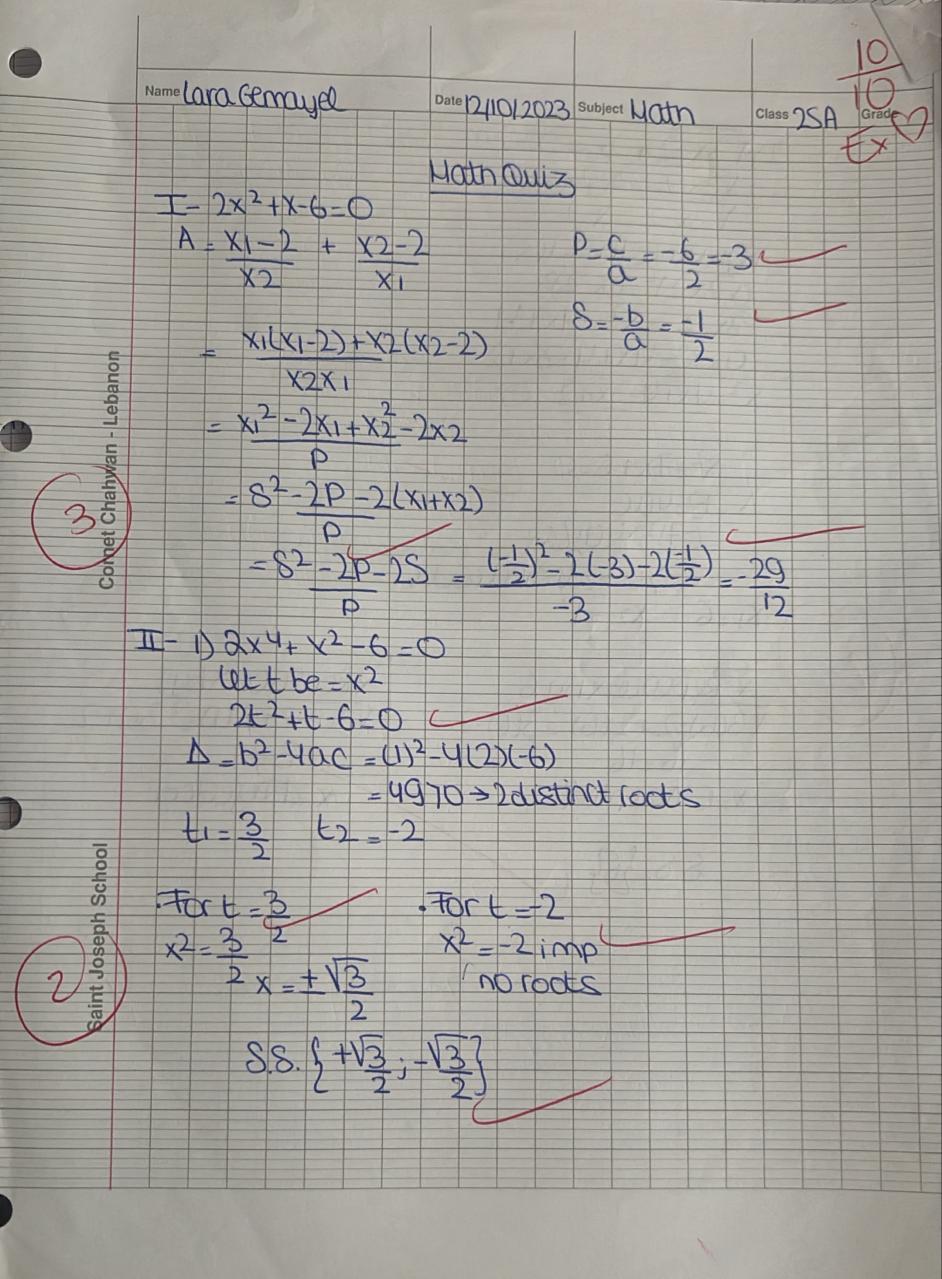 10
10
Ex ♡
Name Lara Gemayel Date 12/10/2023 Subject Math Class 2SA Grade
Math Quiz
I- 2x²+x-6=0
A = x1-2/x2 + x2-2/x1
P=c/a = -6/2 = -3
S = -b/a = -1/2
= x1(x1-2)+x2(x2-2)/x2x1
= x1²-2x1+x2²-2x2/P
= S²-2P-2(x1+x2)/P
= S²-2P-2S/P = (-1/2)²-2(-3)-2(-1/2)/-3 = -29/12
3
Comet Chahwan - Lebanon
II- 1) 2x⁴+x²-6=0
let t be = x²
2t²+t-6=0
Δ=b²-4ac=(1)²-4(2)(-6)
=49>0→2distinct roots
t1=3/2 t2=-2
.For t=3/2
x²=3/2 x=±√3/2
.For t=-2
x²=-2 imp
no roots
S.S.{+√3/2;-√3/2}
2
Saint Joseph School